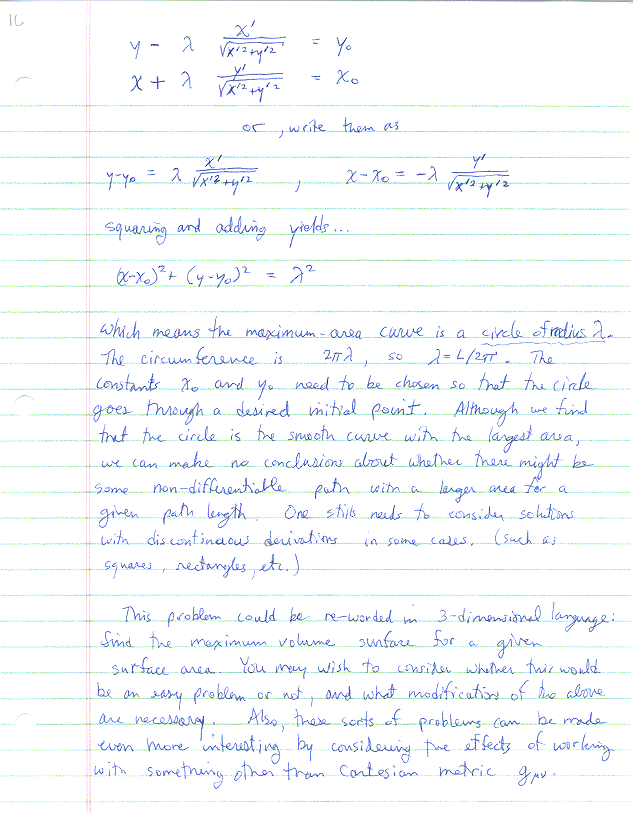 16
y - λ x'/√x'²+y'² = y₀
x + λ y'/√x'²+y'² = x₀
or, write them as
y-y₀ = λ x'/√x'²+y'² , x-x₀ = -λ y'/√x'²+y'²
squaring and adding yields...
(x-x₀)² + (y-y₀)² = λ²
which means the maximum-area curve is a circle of radius λ.
The circumference is 2πλ, so λ=L/2π. The
constants x₀ and y₀ need to be chosen so that the circle
goes through a desired initial point. Although we find
that the circle is the smooth curve with the largest area,
we can make no conclusions about whether there might be
some non-differentiable path with a larger area for a
given path length. One still needs to consider solutions
with discontinuous derivations in some cases. (such as
squares, rectangles, etc.)
This problem could be re-worded in 3-dimensional language:
find the maximum volume surface for a given
surface area. You may wish to consider whether this would
be an easy problem or not, and what modifications of the above
are necessary. Also, these sorts of problems can be made
even more interesting by considering the effects of working
with something other than Cartesian metric gμν.